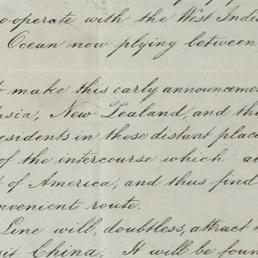 co-operate with the West Indi
Ocean now plying between
to make this early announcemen
sia, New Zealand, and th
residents in those distant plac
of the intercourse which a
t of America, and thus find
nvenient route.
Line will, doubtless, attract
sit China. It will be foun